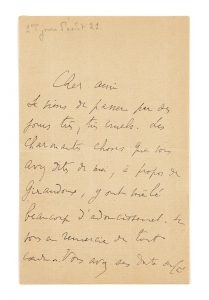 Août 21
Cher ami
Je viens de passer par des
jours très, très cruels. Les
charmantes choses que vous
avez dites de moi, à propos de
Giraudoux, y ont mêlé
beaucoup d'adoucissement. Je
vous en remercie de tout
cœur. Vous avez